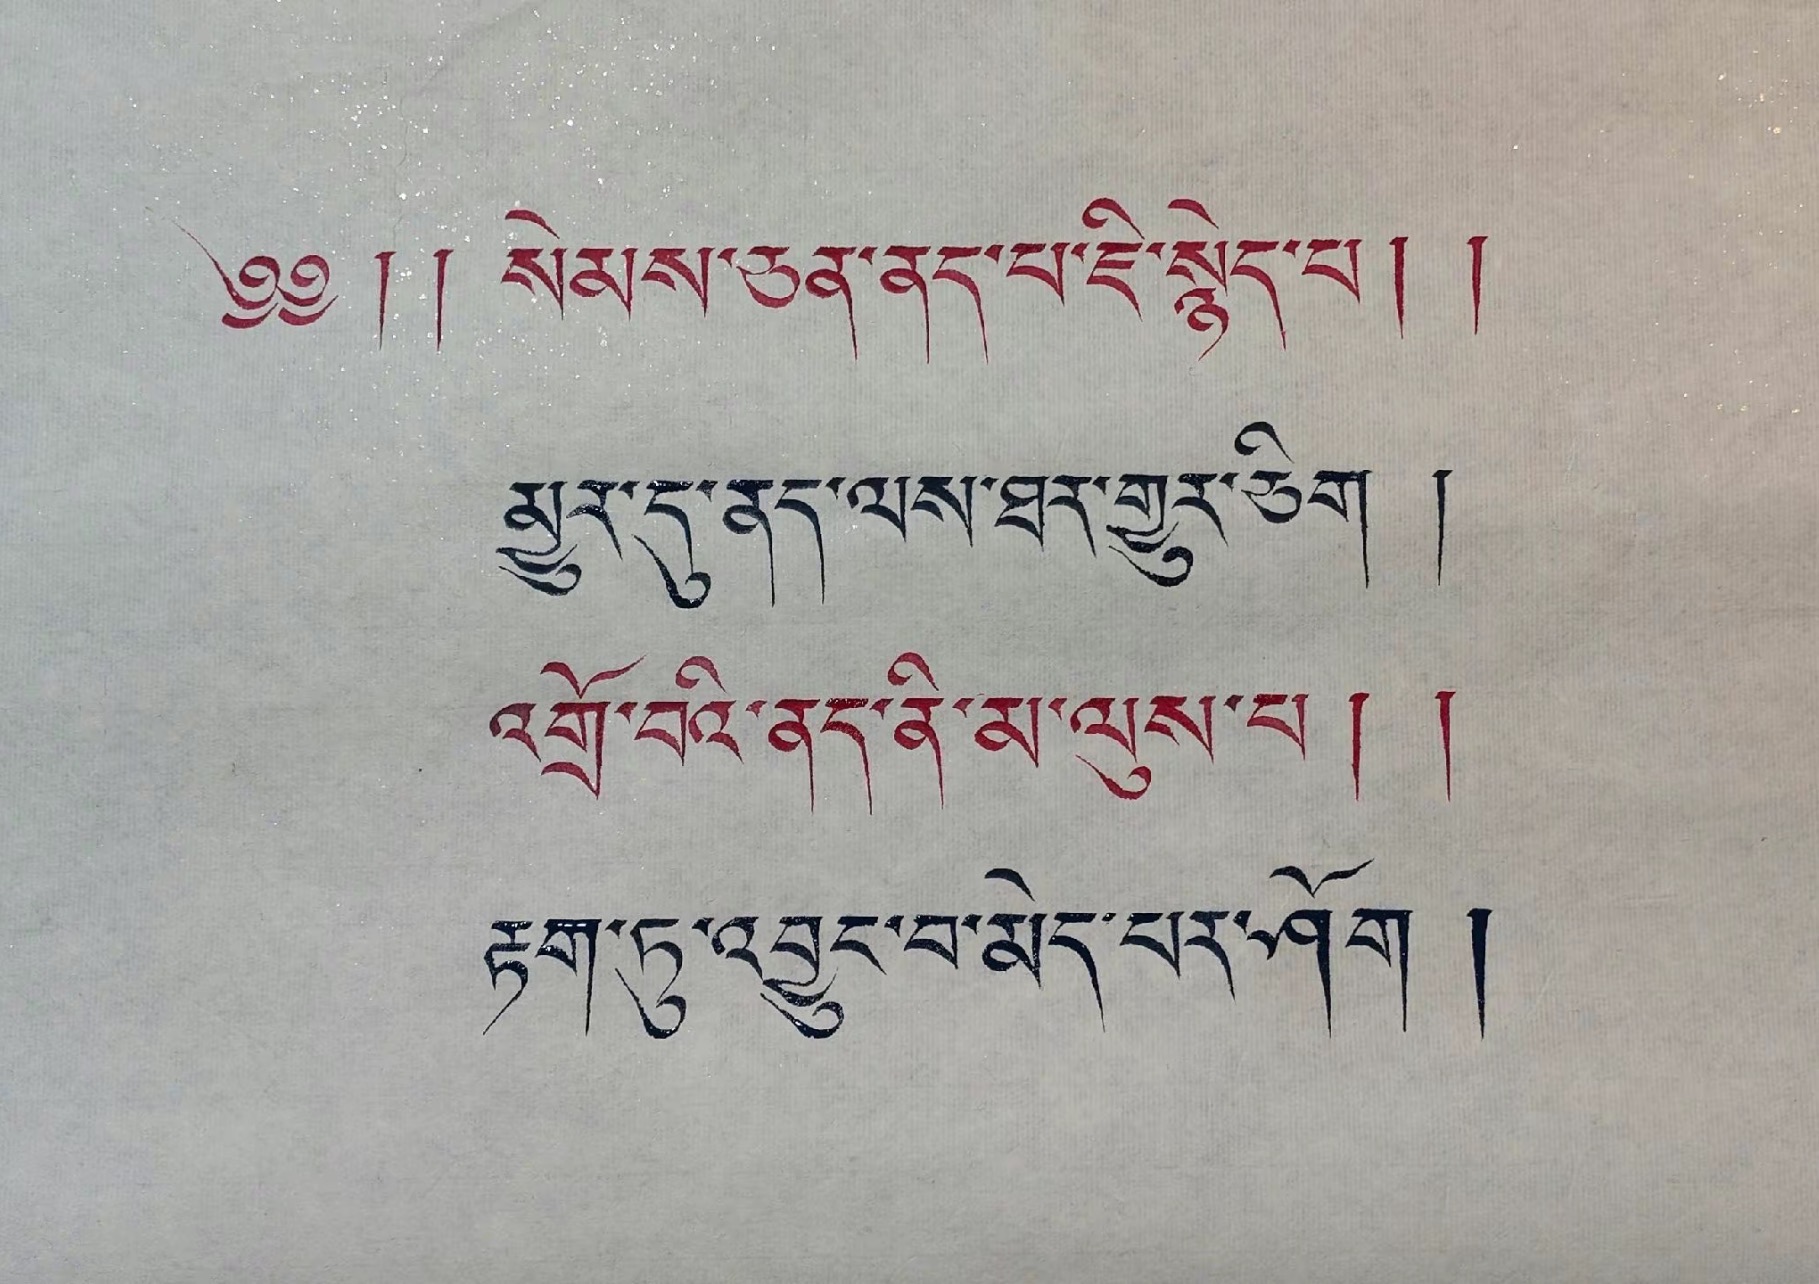 ༄༅། །སེམས་ཅན་ནད་པ་ཇི་སྙེད་པ། །
མྱུར་དུ་ནད་ལས་ཐར་གྱུར་ཅིག །
འགྲོ་བའི་ནད་ནི་མ་ལུས་པ། །
རྟག་ཏུ་འབྱུང་བ་མེད་པར་ཤོག །